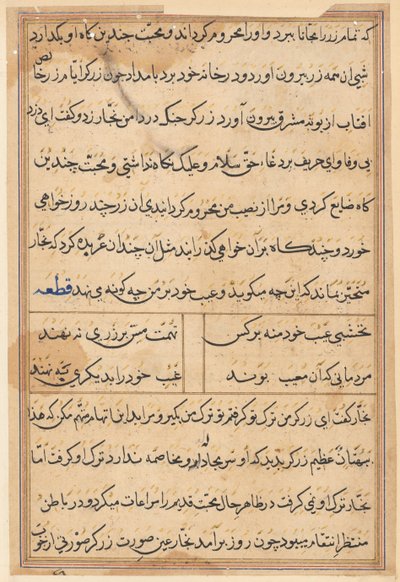 که تمام زر را مجانا ببرد و او را محروم گرداند و محبت چندین گاه او بگذارد
شبی آن همه زر بیرون آورد و در خانه خود برد بامداد چون زرگر ایام زر خالص
افتاب از بوته مشرق بیرون آورد زرگر چنگ در دامن نجار زد و گفت ای دزد
بی وفا و ای حریف پر دغا حق سلام و علیک نگاه نداشتی و محبت چندین
گاه ضایع کردی و مرا از نصیب من محروم گردانیدی آن زر چند روز خواهی
خورد و چند گاه بر آن خواهی گذرانید مثل آن چندان عربده کرد که نجار
متحیر بماند که این چه میگوید و عیب خود بر من چه گونه می نهد قطعه
نخشبی عیب خود منه بر کس تهمت مس بر زری نه نهند
مردمانی که آن معیب بوند عیب خود را بدیگری نه نهند
نجار گفت ای زرگر من ترک تو گرفتم تو ترک من بگیر و مرا بدین اتهام متهم مکن که هذا
بهتان عظیم زرگر بدید که او سر مجادله و مخاصمه ندارد ترک او گرفت اما
نجار ترک او نمی گرفت در ظاهر حال محبت قدیم را مراعات میکرد و در باطن
منتظر انتقام میبود چون روز برآمد نجار عین صورت زرگر صورتی از چوب